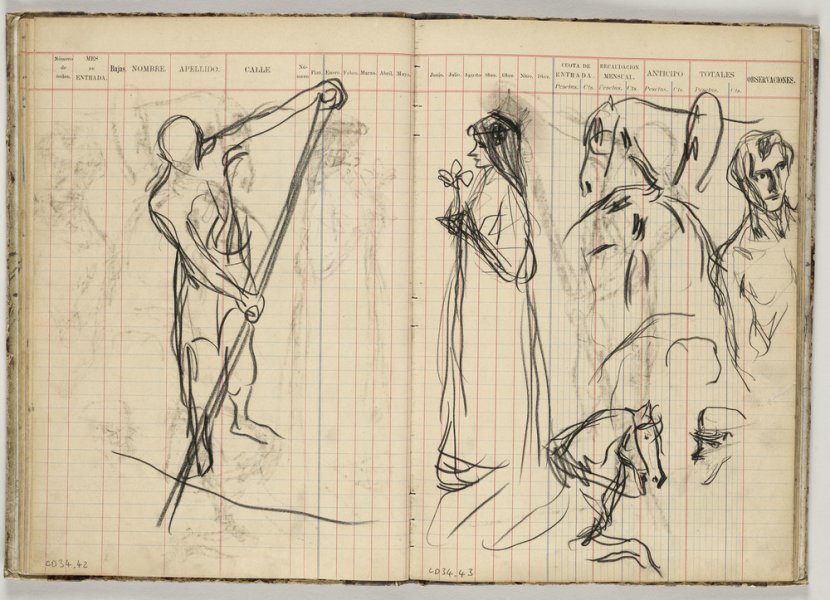 Número de orden.
MES DE ENTRADA.
Bajas.
NOMBRE.
APELLIDO.
CALLE
Nú- mero
Piso.
Enero.
Febro.
Marzo.
Abril.
Mayo.
Junio.
Julio.
Agosto
Sbre.
Obre.
Nbre.
Dbre.
CUOTA DE ENTRADA.
Pesetas.
Cts.
RECAUDACION MENSUAL.
Pesetas.
Cts.
ANTICIPO
Pesetas.
Cts.
TOTALES
Pesetas.
Cts.
OBSERVACIONES.
CD34_42
CD34_43